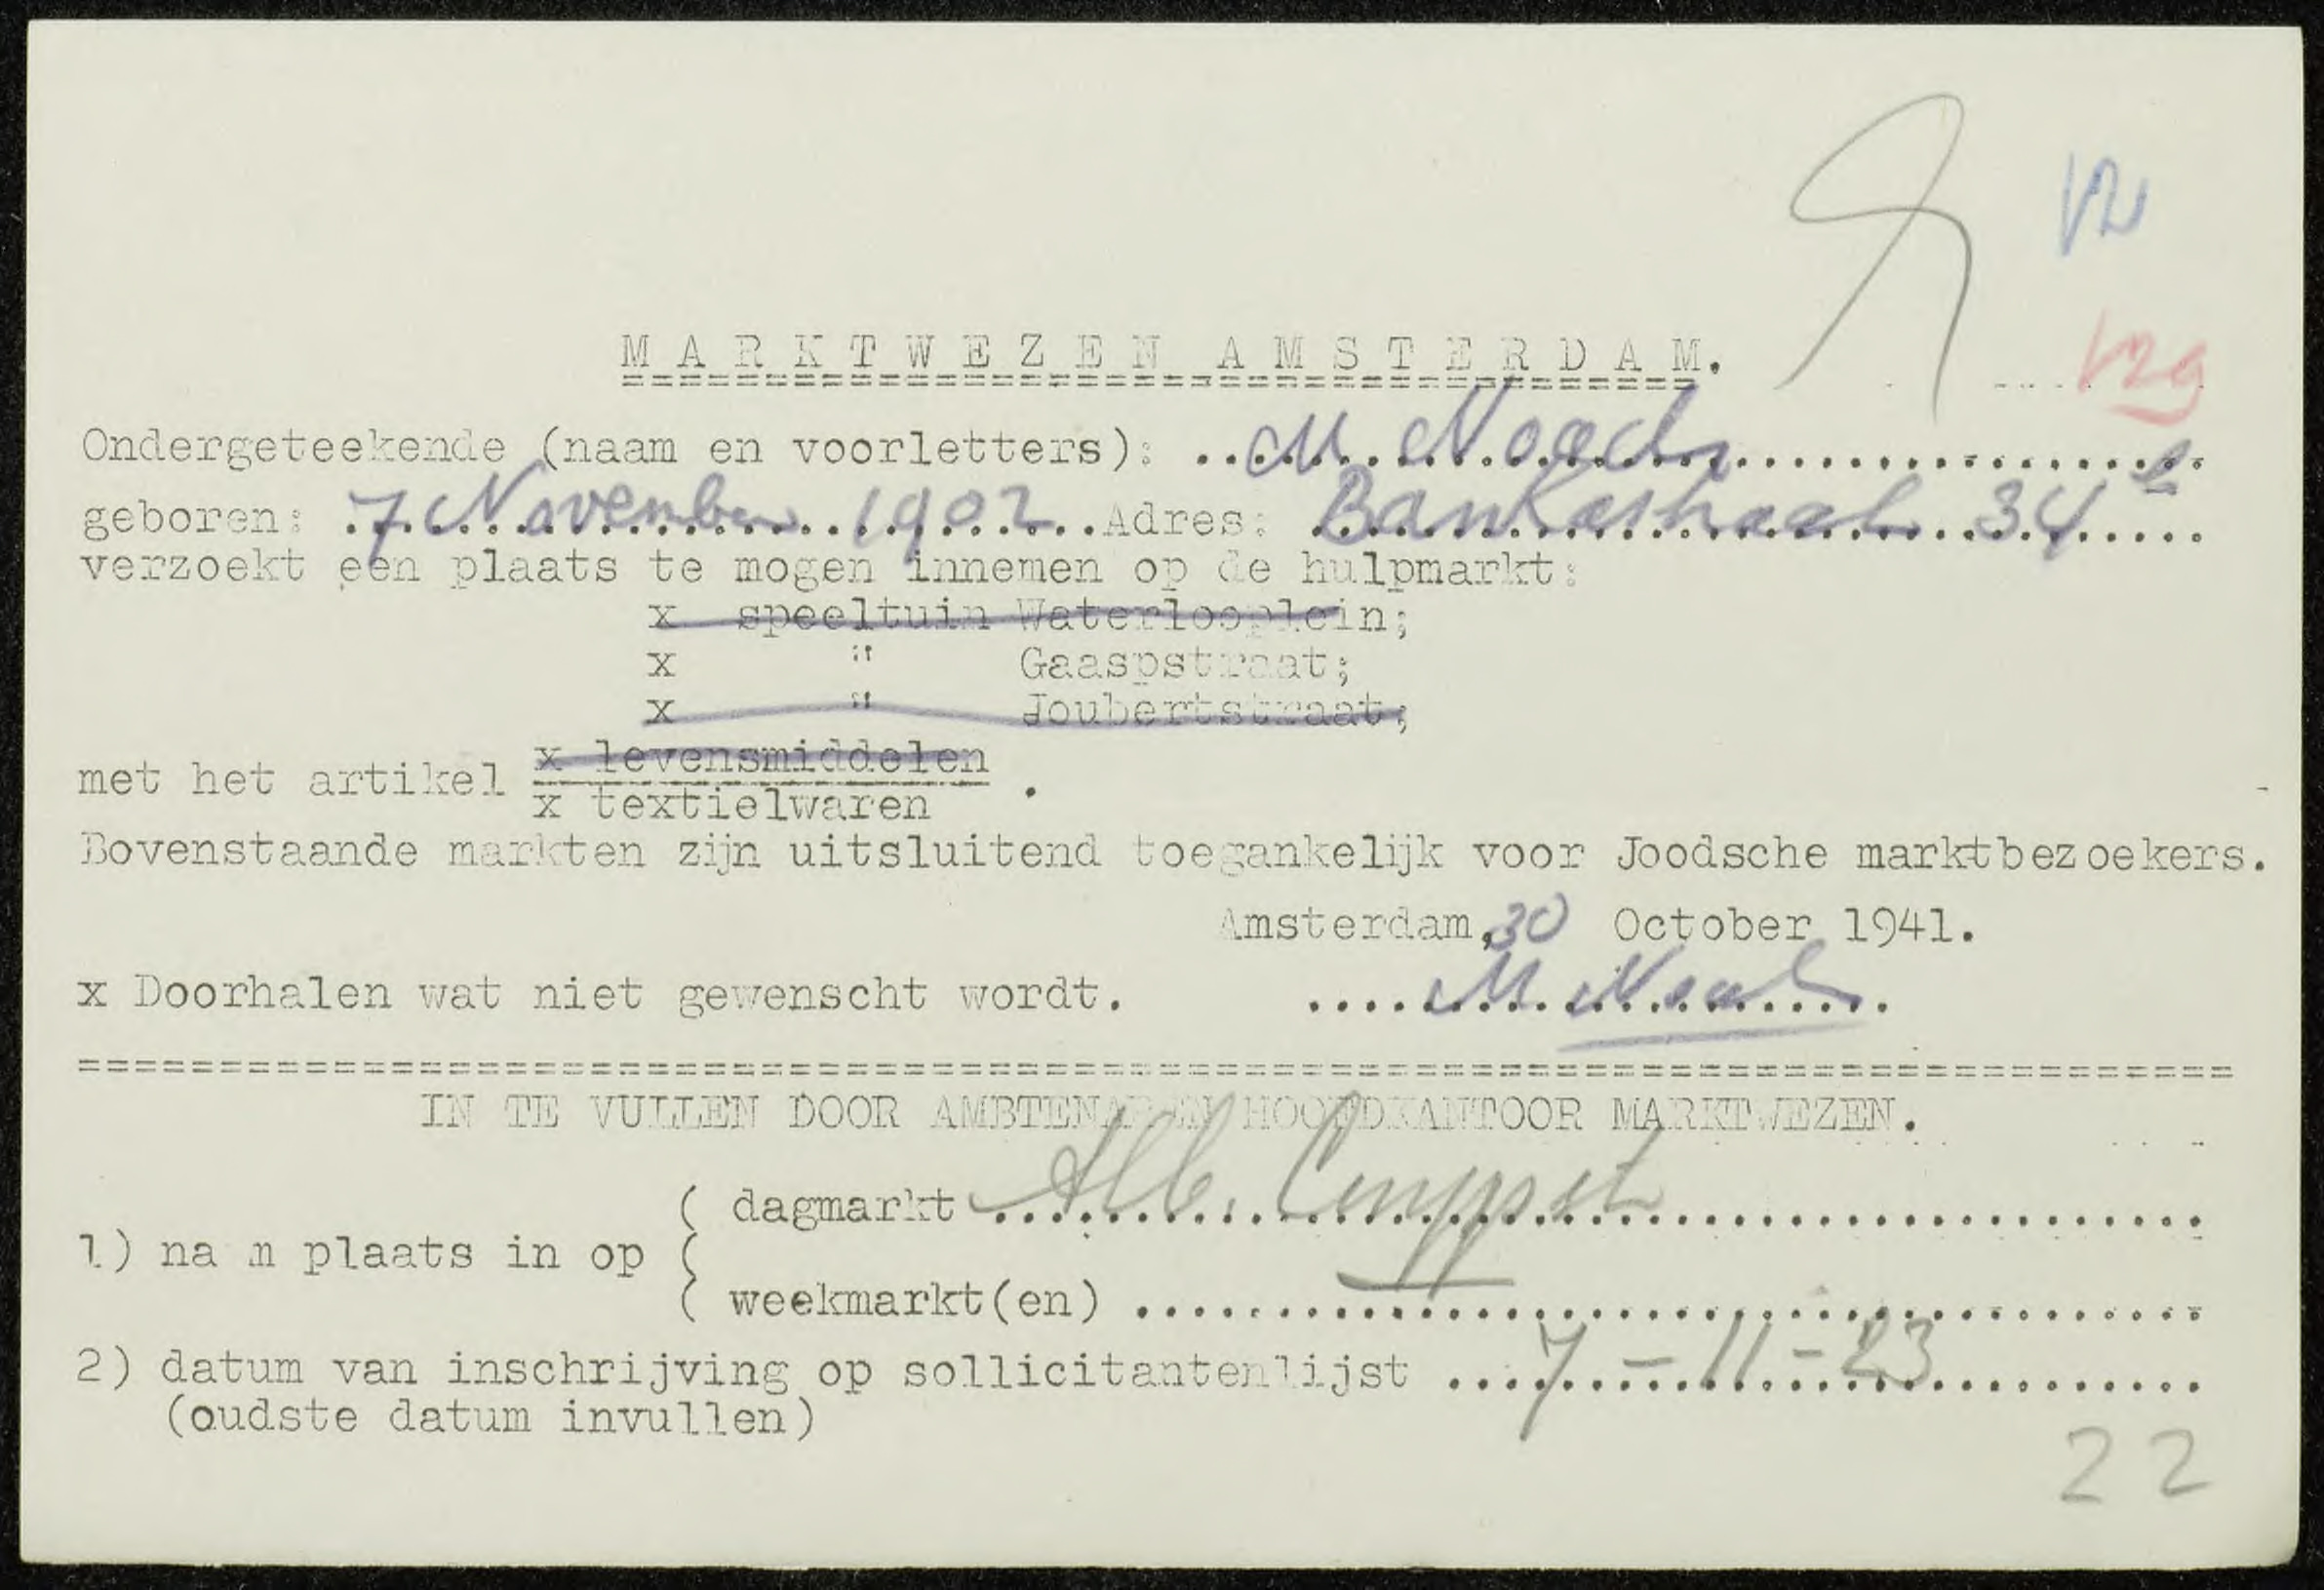 MARKTWEZEN AMSTERDAM.
Ondergeteekende (naam en voorletters): M. Noach
geboren: 7 November 1902 Adres: Bankastraat 34
verzoekt een plaats te mogen innemen op de hulpmarkt:
x speeltuin Waterlooplein;
x " Gaaspstraat;
x " Joubertstraat;
x levensmiddelen
met het artikel
x textielwaren .
Bovenstaande markten zijn uitsluitend toegankelijk voor Joodsche marktbezoekers.
Amsterdam, 30 October 1941.
x Doorhalen wat niet gewenscht wordt. M. Noach
IN TE VULLEN DOOR AMBTENAREN HOOFDKANTOOR MARKTWEZEN.
( dagmarkt Alb. Cuypst
1) na m plaats in op (
( weekmarkt(en)
2) datum van inschrijving op sollicitantenlijst 7-11-23
(oudste datum invullen)
22